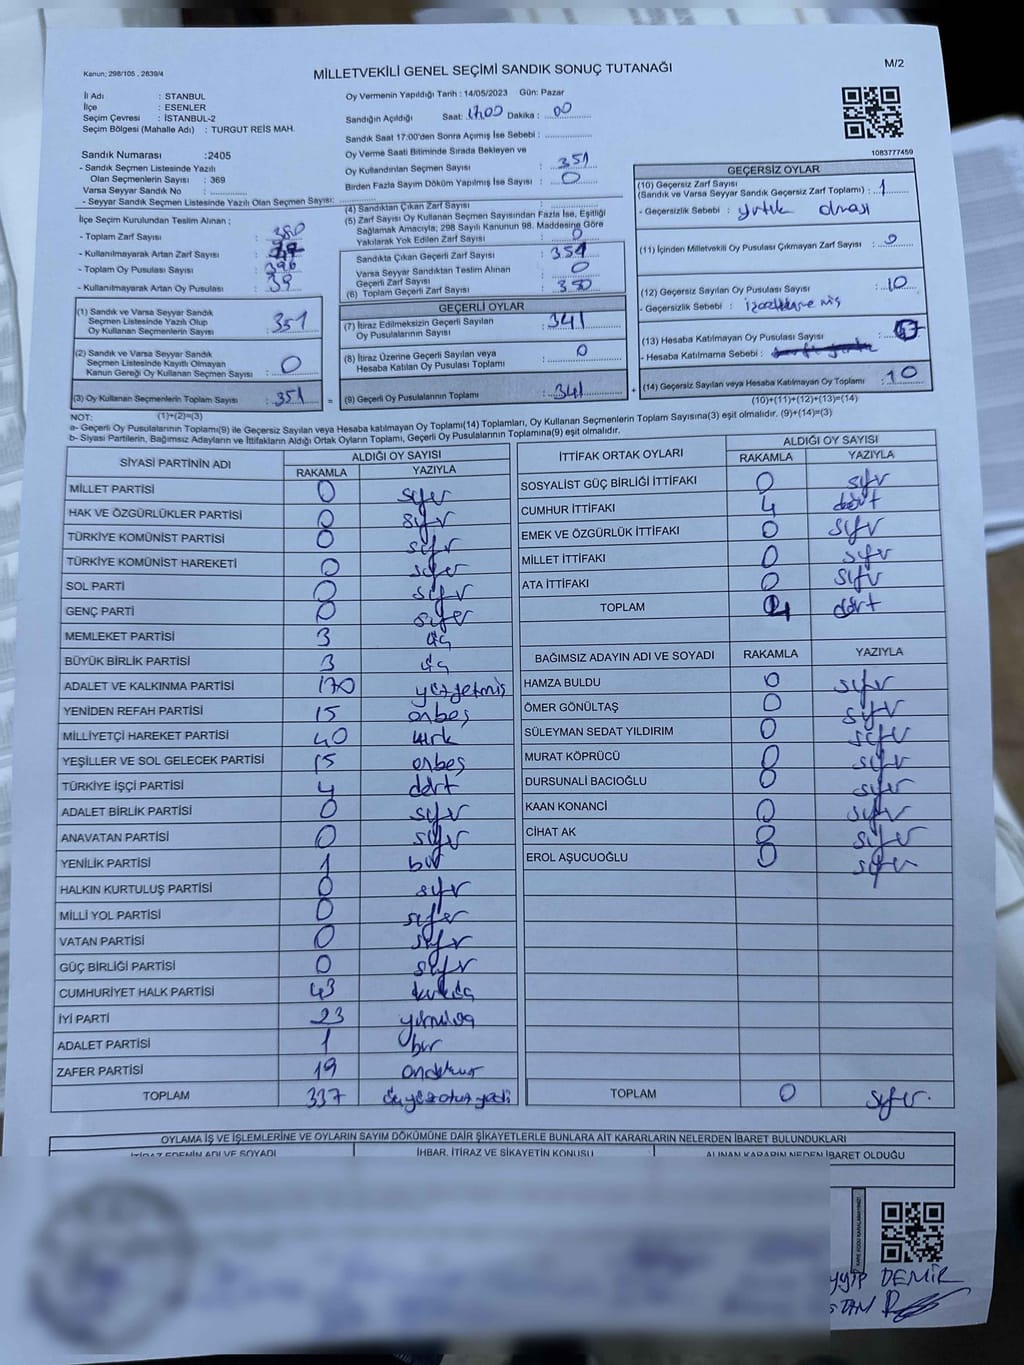 Kanun; 298/105 , 2839/4
MİLLETVEKİLİ GENEL SEÇİMİ SANDIK SONUÇ TUTANAĞI
M/2
İl Adı : STANBUL
İlçe : ESENLER
Seçim Çevresi : İSTANBUL-2
Seçim Bölgesi (Mahalle Adı) : TURGUT REİS MAH.
Sandık Numarası :2405
- Sandık Seçmen Listesinde Yazılı
Olan Seçmenlerin Sayısı : 369
Varsa Seyyar Sandık No :
- Seyyar Sandık Seçmen Listesinde Yazılı Olan Seçmen Sayısı:
İlçe Seçim Kurulundan Teslim Alınan ;
- Toplam Zarf Sayısı : 380
- Kullanılmayarak Artan Zarf Sayısı :
- Toplam Oy Pusulası Sayısı : 396
- Kullanılmayarak Artan Oy Pusulası : 39
(1) Sandık ve Varsa Seyyar Sandık
Seçmen Listesinde Yazılı Olup
Oy Kullanan Seçmenlerin Sayısı : 351
(2) Sandık ve Varsa Seyyar Sandık
Seçmen Listesinde Kayıtlı Olmayan
Kanun Gereği Oy Kullanan Seçmen Sayısı : 0
(3) Oy Kullanan Seçmenlerin Toplam Sayısı : 351
(1)+(2)=(3)
Oy Vermenin Yapıldığı Tarih : 14/05/2023 Gün: Pazar
Sandığın Açıldığı Saat: 17.00 Dakika : 00
Sandık Saat 17:00'den Sonra Açımış İse Sebebi :
Oy Verme Saati Bitiminde Sırada Bekleyen ve
Oy Kullandırılan Seçmen Sayısı : 351
Birden Fazla Sayım Döküm Yapılmış İse Sayısı : 0
(4) Sandıktan Çıkan Zarf Sayısı :
(5) Zarf Sayısı Oy Kullanan Seçmen Sayısından Fazla İse, Eşitliği
Sağlamak Amacıyla; 298 Sayılı Kanunun 98. Maddesine Göre
Yakılarak Yok Edilen Zarf Sayısı : 0
Sandıkta Çıkan Geçerli Zarf Sayısı : 351
Varsa Seyyar Sandıktan Teslim Alınan
Geçerli Zarf Sayısı : 0
(6) Toplam Geçerli Zarf Sayısı : 350
GEÇERLİ OYLAR
(7) İtiraz Edilmeksizin Geçerli Sayılan
Oy Pusulalarının Sayısı : 341
(8) İtiraz Üzerine Geçerli Sayılan veya
Hesaba Katılan Oy Pusulası Toplamı : 0
(9) Geçerli Oy Pusulalarının Toplamı : 341
1083777459
GEÇERSİZ OYLAR
(10) Geçersiz Zarf Sayısı
(Sandık ve Varsa Seyyar Sandık Geçersiz Zarf Toplamı) : 1
- Geçersizlik Sebebi : yırtık olması
(11) İçinden Milletvekili Oy Pusulası Çıkmayan Zarf Sayısı : 0
(12) Geçersiz Sayılan Oy Pusulası Sayısı : 10
- Geçersizlik Sebebi :
(13) Hesaba Katılmayan Oy Pusulası Sayısı :
- Hesaba Katılmama Sebebi :
(14) Geçersiz Sayılan veya Hesaba Katılmayan Oy Toplamı : 10
(10)+(11)+(12)+(13)=(14)
NOT:
a- Geçerli Oy Pusulalarının Toplamı(9) ile Geçersiz Sayılan veya Hesaba katılmayan Oy Toplamı(14) Toplamları, Oy Kullanan Seçmenlerin Toplam Sayısına(3) eşit olmalıdır. (9)+(14)=(3)
b- Siyasi Partilerin, Bağımsız Adayların ve İttifakların Aldığı Ortak Oyların Toplamı, Geçerli Oy Pusulalarının Toplamına(9) eşit olmalıdır.
SİYASİ PARTİNİN ADI ALDIĞI OY SAYISI
RAKAMLA YAZIYLA
MİLLET PARTİSİ 0 sıfır
HAK VE ÖZGÜRLÜKLER PARTİSİ 0 sıfır
TÜRKİYE KOMÜNİST PARTİSİ 0 sıfır
TÜRKİYE KOMÜNİST HAREKETİ 0 sıfır
SOL PARTİ 0 sıfır
GENÇ PARTİ 0 sıfır
MEMLEKET PARTİSİ 3 üç
BÜYÜK BİRLİK PARTİSİ 3 üç
ADALET VE KALKINMA PARTİSİ 170 yüzyetmiş
YENİDEN REFAH PARTİSİ 15 onbeş
MİLLİYETÇİ HAREKET PARTİSİ 40 kırk
YEŞİLLER VE SOL GELECEK PARTİSİ 15 onbeş
TÜRKİYE İŞÇİ PARTİSİ 4 dört
ADALET BİRLİK PARTİSİ 0 sıfır
ANAVATAN PARTİSİ 0 sıfır
YENİLİK PARTİSİ 1 bir
HALKIN KURTULUŞ PARTİSİ 0 sıfır
MİLLİ YOL PARTİSİ 0 sıfır
VATAN PARTİSİ 0 sıfır
GÜÇ BİRLİĞİ PARTİSİ 0 sıfır
CUMHURİYET HALK PARTİSİ 43 kırküç
İYİ PARTİ 23 yirmiüç
ADALET PARTİSİ 1 bir
ZAFER PARTİSİ 19 ondokuz
TOPLAM 337 üçyüzotuzyedi
İTTİFAK ORTAK OYLARI ALDIĞI OY SAYISI
RAKAMLA YAZIYLA
SOSYALİST GÜÇ BİRLİĞİ İTTİFAKI 0 sıfır
CUMHUR İTTİFAKI 4 dört
EMEK VE ÖZGÜRLÜK İTTİFAKI 0 sıfır
MİLLET İTTİFAKI 0 sıfır
ATA İTTİFAKI 0 sıfır
TOPLAM 4 dört
BAĞIMSIZ ADAYIN ADI VE SOYADI RAKAMLA YAZIYLA
HAMZA BULDU 0 sıfır
ÖMER GÖNÜLTAŞ 0 sıfır
SÜLEYMAN SEDAT YILDIRIM 0 sıfır
MURAT KÖPRÜCÜ 0 sıfır
DURSUNALİ BACIOĞLU 0 sıfır
KAAN KONANCİ 0 sıfır
CİHAT AK 0 sıfır
EROL AŞUCUOĞLU 0 sıfır
TOPLAM 0 sıfır.
OYLAMA İŞ VE İŞLEMLERİNE VE OYLARIN SAYIM DÖKÜMÜNE DAİR ŞİKAYETLERLE BUNLARA AİT KARARLARIN NELERDEN İBARET BULUNDUKLARI
İTİRAZ EDENİN ADI VE SOYADI İHBAR, İTİRAZ VE ŞİKAYETİN KONUSU ALINAN KARARIN NEDEN İBARET OLDUĞU
DEMİR